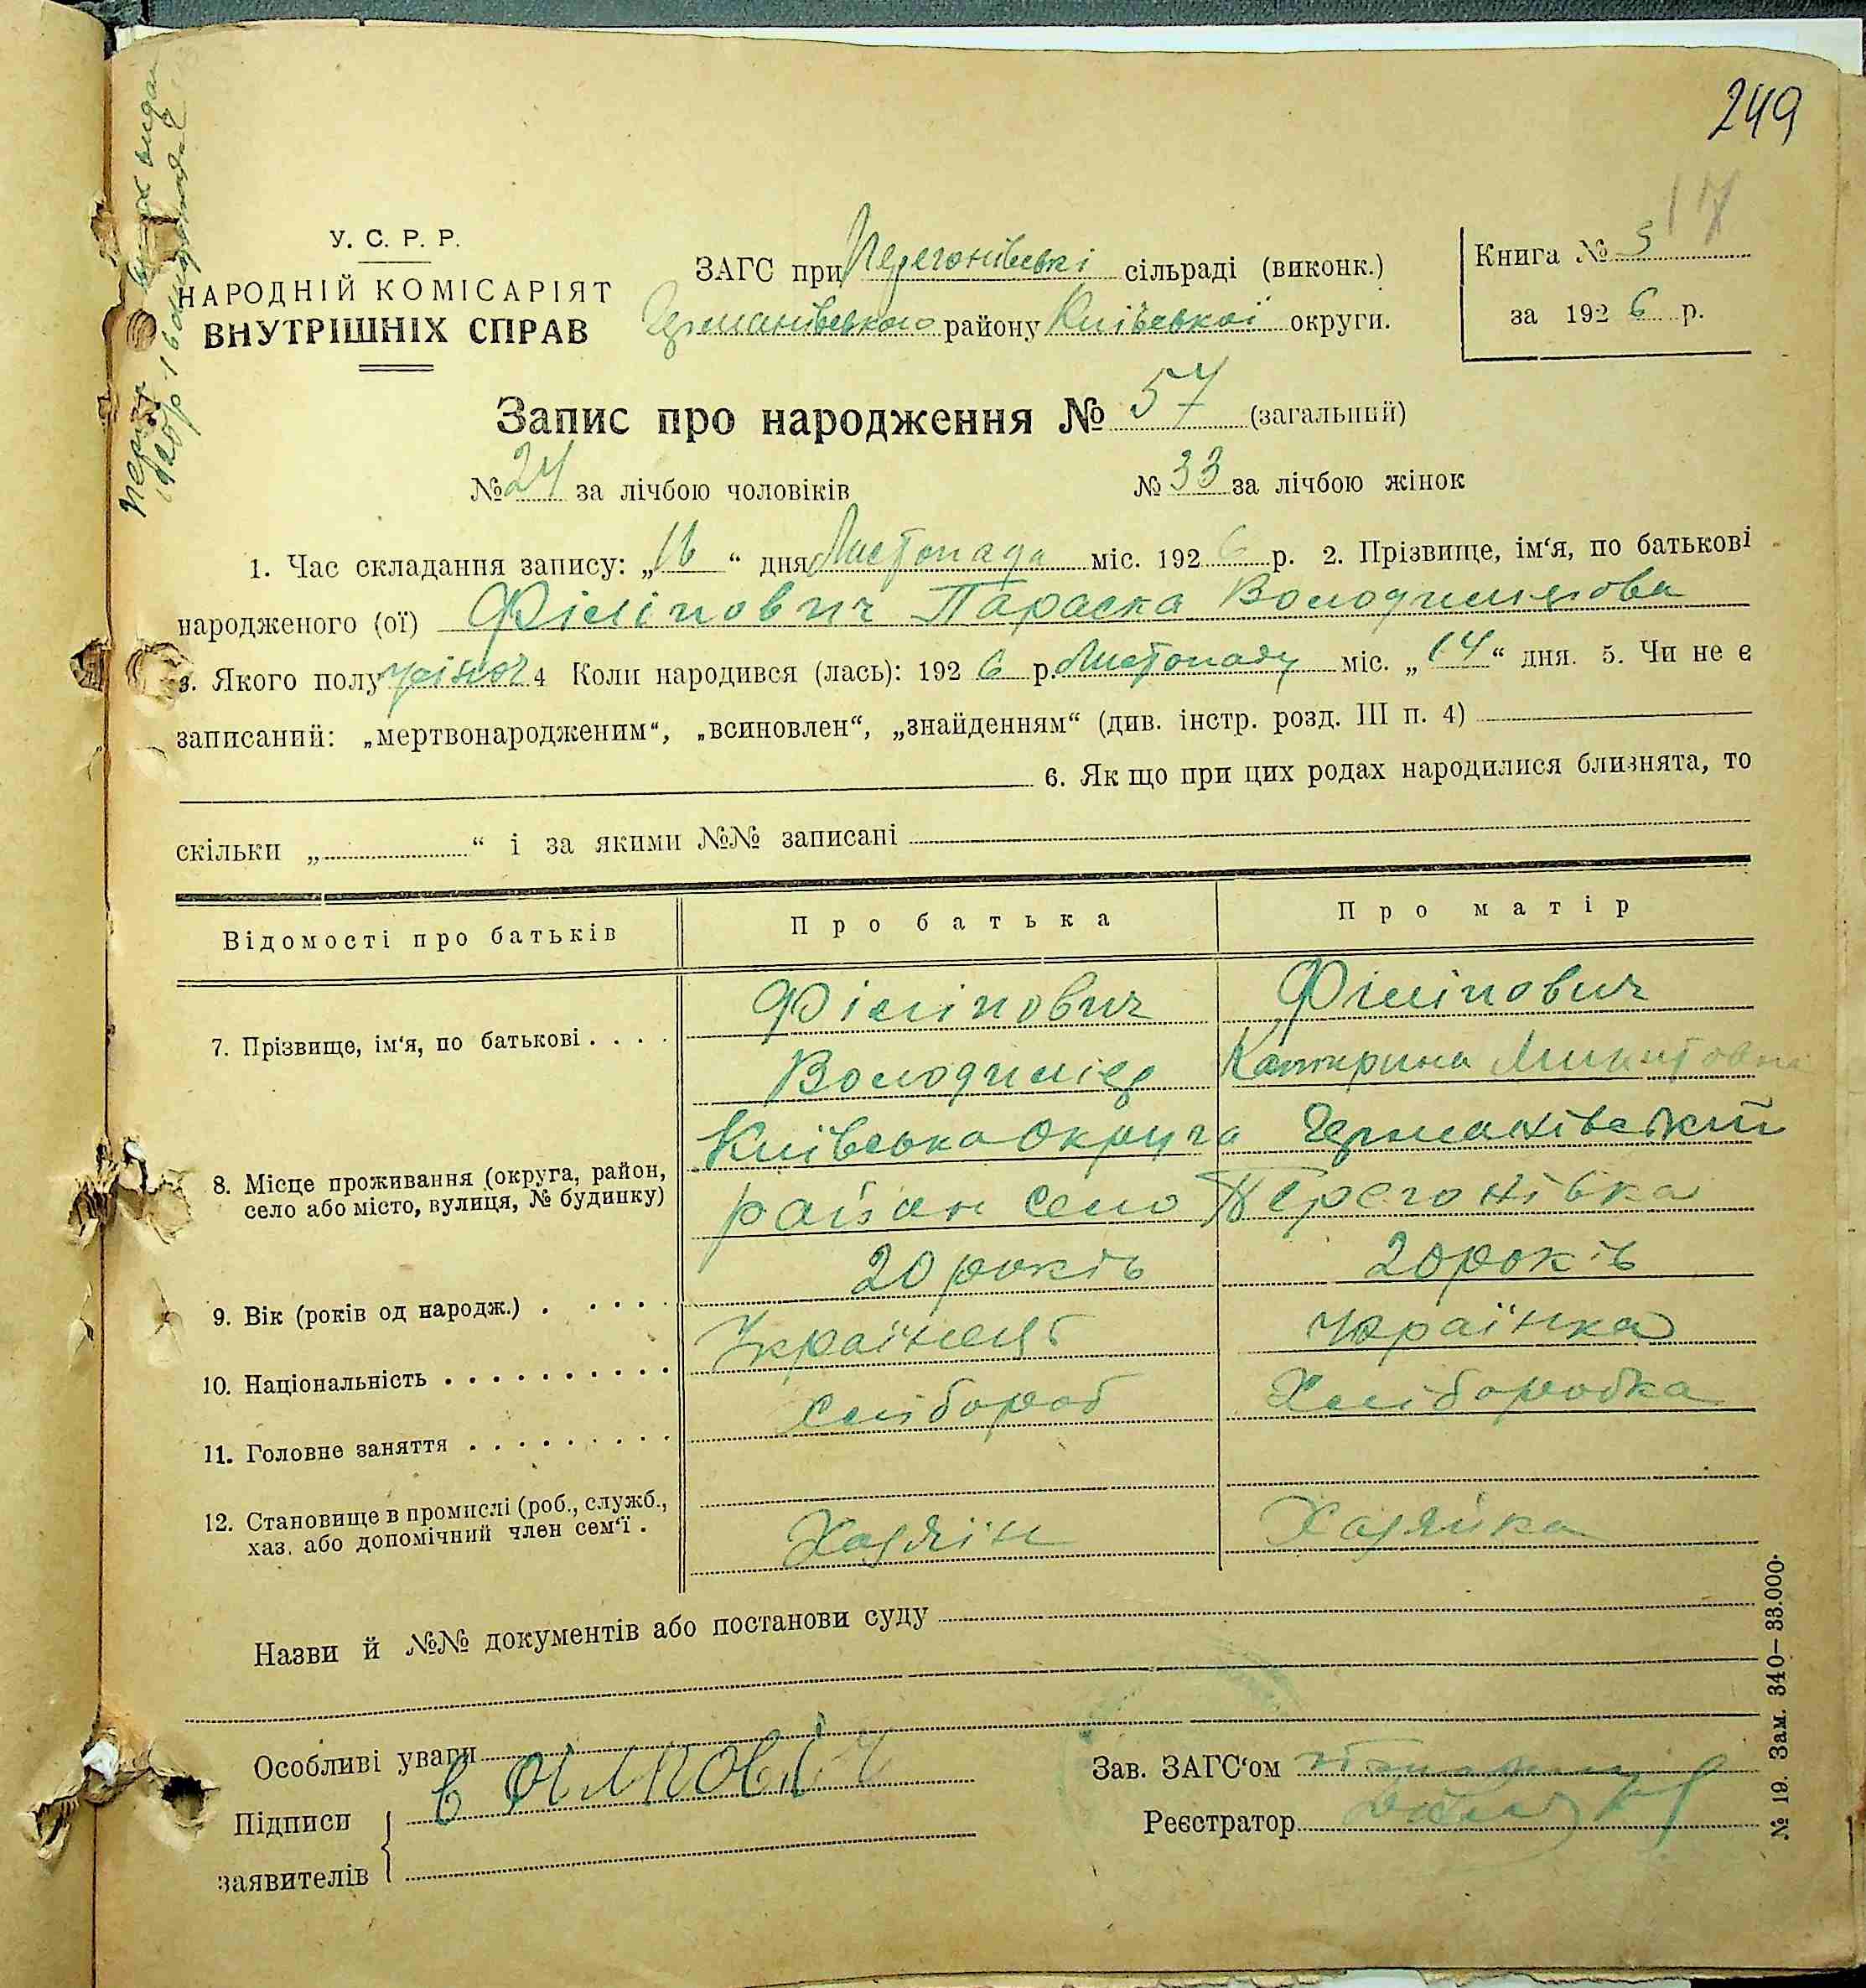 249
17
У. С. Р. Р.
НАРОДНІЙ КОМІСАРІЯТ
ВНУТРІШНІХ СПРАВ
ЗАГС при Перегонівскі сільраді (виконк.)
Германівського району Київської округи.
Книга № 5
за 1926 р.
Запис про народження № 57 (загальний)
№ 24 за лічбою чоловіків № 33 за лічбою жінок
1. Час складання запису: „16“ дня Листопада міс. 1926 р. 2. Прізвище, ім‘я, по батькові
народженого (ої) Філіпович Параска Володимирова
3. Якого полу жіноч 4 Коли народився (лась): 1926 р. Листопаду міс. „14“ дня. 5. Чи не є
записаний: „мертвонародженим“, „всиновлен“, „знайденням“ (див. інстр. розд. III п. 4)
6. Як що при цих родах народилися близнята, то
скільки „ “ і за якими №№ записані
Відомості про батьків Про батька Про матір
7. Прізвище, ім‘я, по батькові . . . . Філіпович Філіпович
Володимир Катирина Микитовна
8. Місце проживання (округа, район, село або місто, вулиця, № будинку) Київська округа Германівский
район село Перегонівка
9. Вік (років од народж.) . . . . 20 років 20 років
10. Національність . . . . . . . . . . Українець Українка
11. Головне заняття . . . . . . . . . Хлібороб Хліборобка
12. Становище в промислі (роб., служб., хаз. або допомічний член сем‘ї . Хазяін Хазяйка
Назви й №№ документів або постанови суду
Особливі уваги
Підписи
заявителів
Зав. ЗАГС‘ом
Реєстратор
№ 19. Зам. 340—33.000.